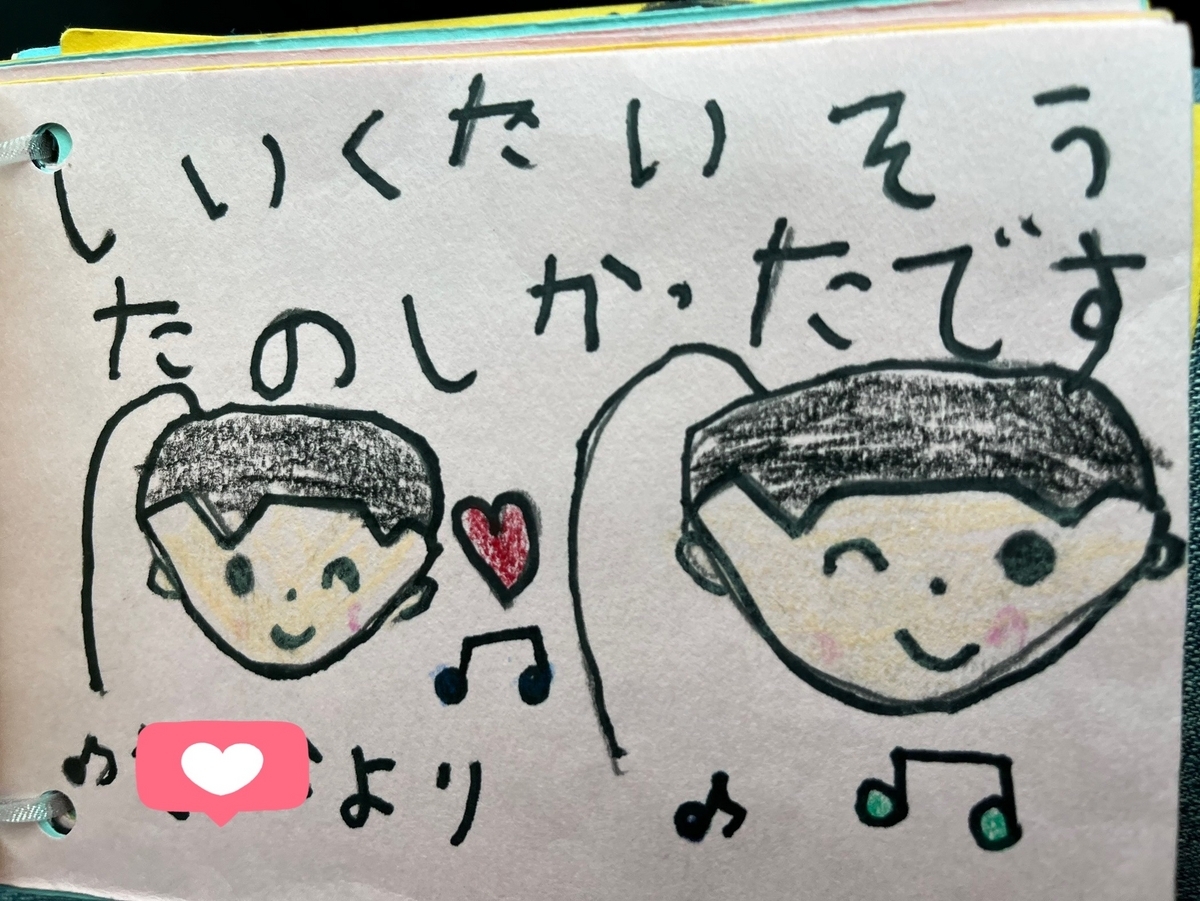 しいくたいそう
たのしかったです
より